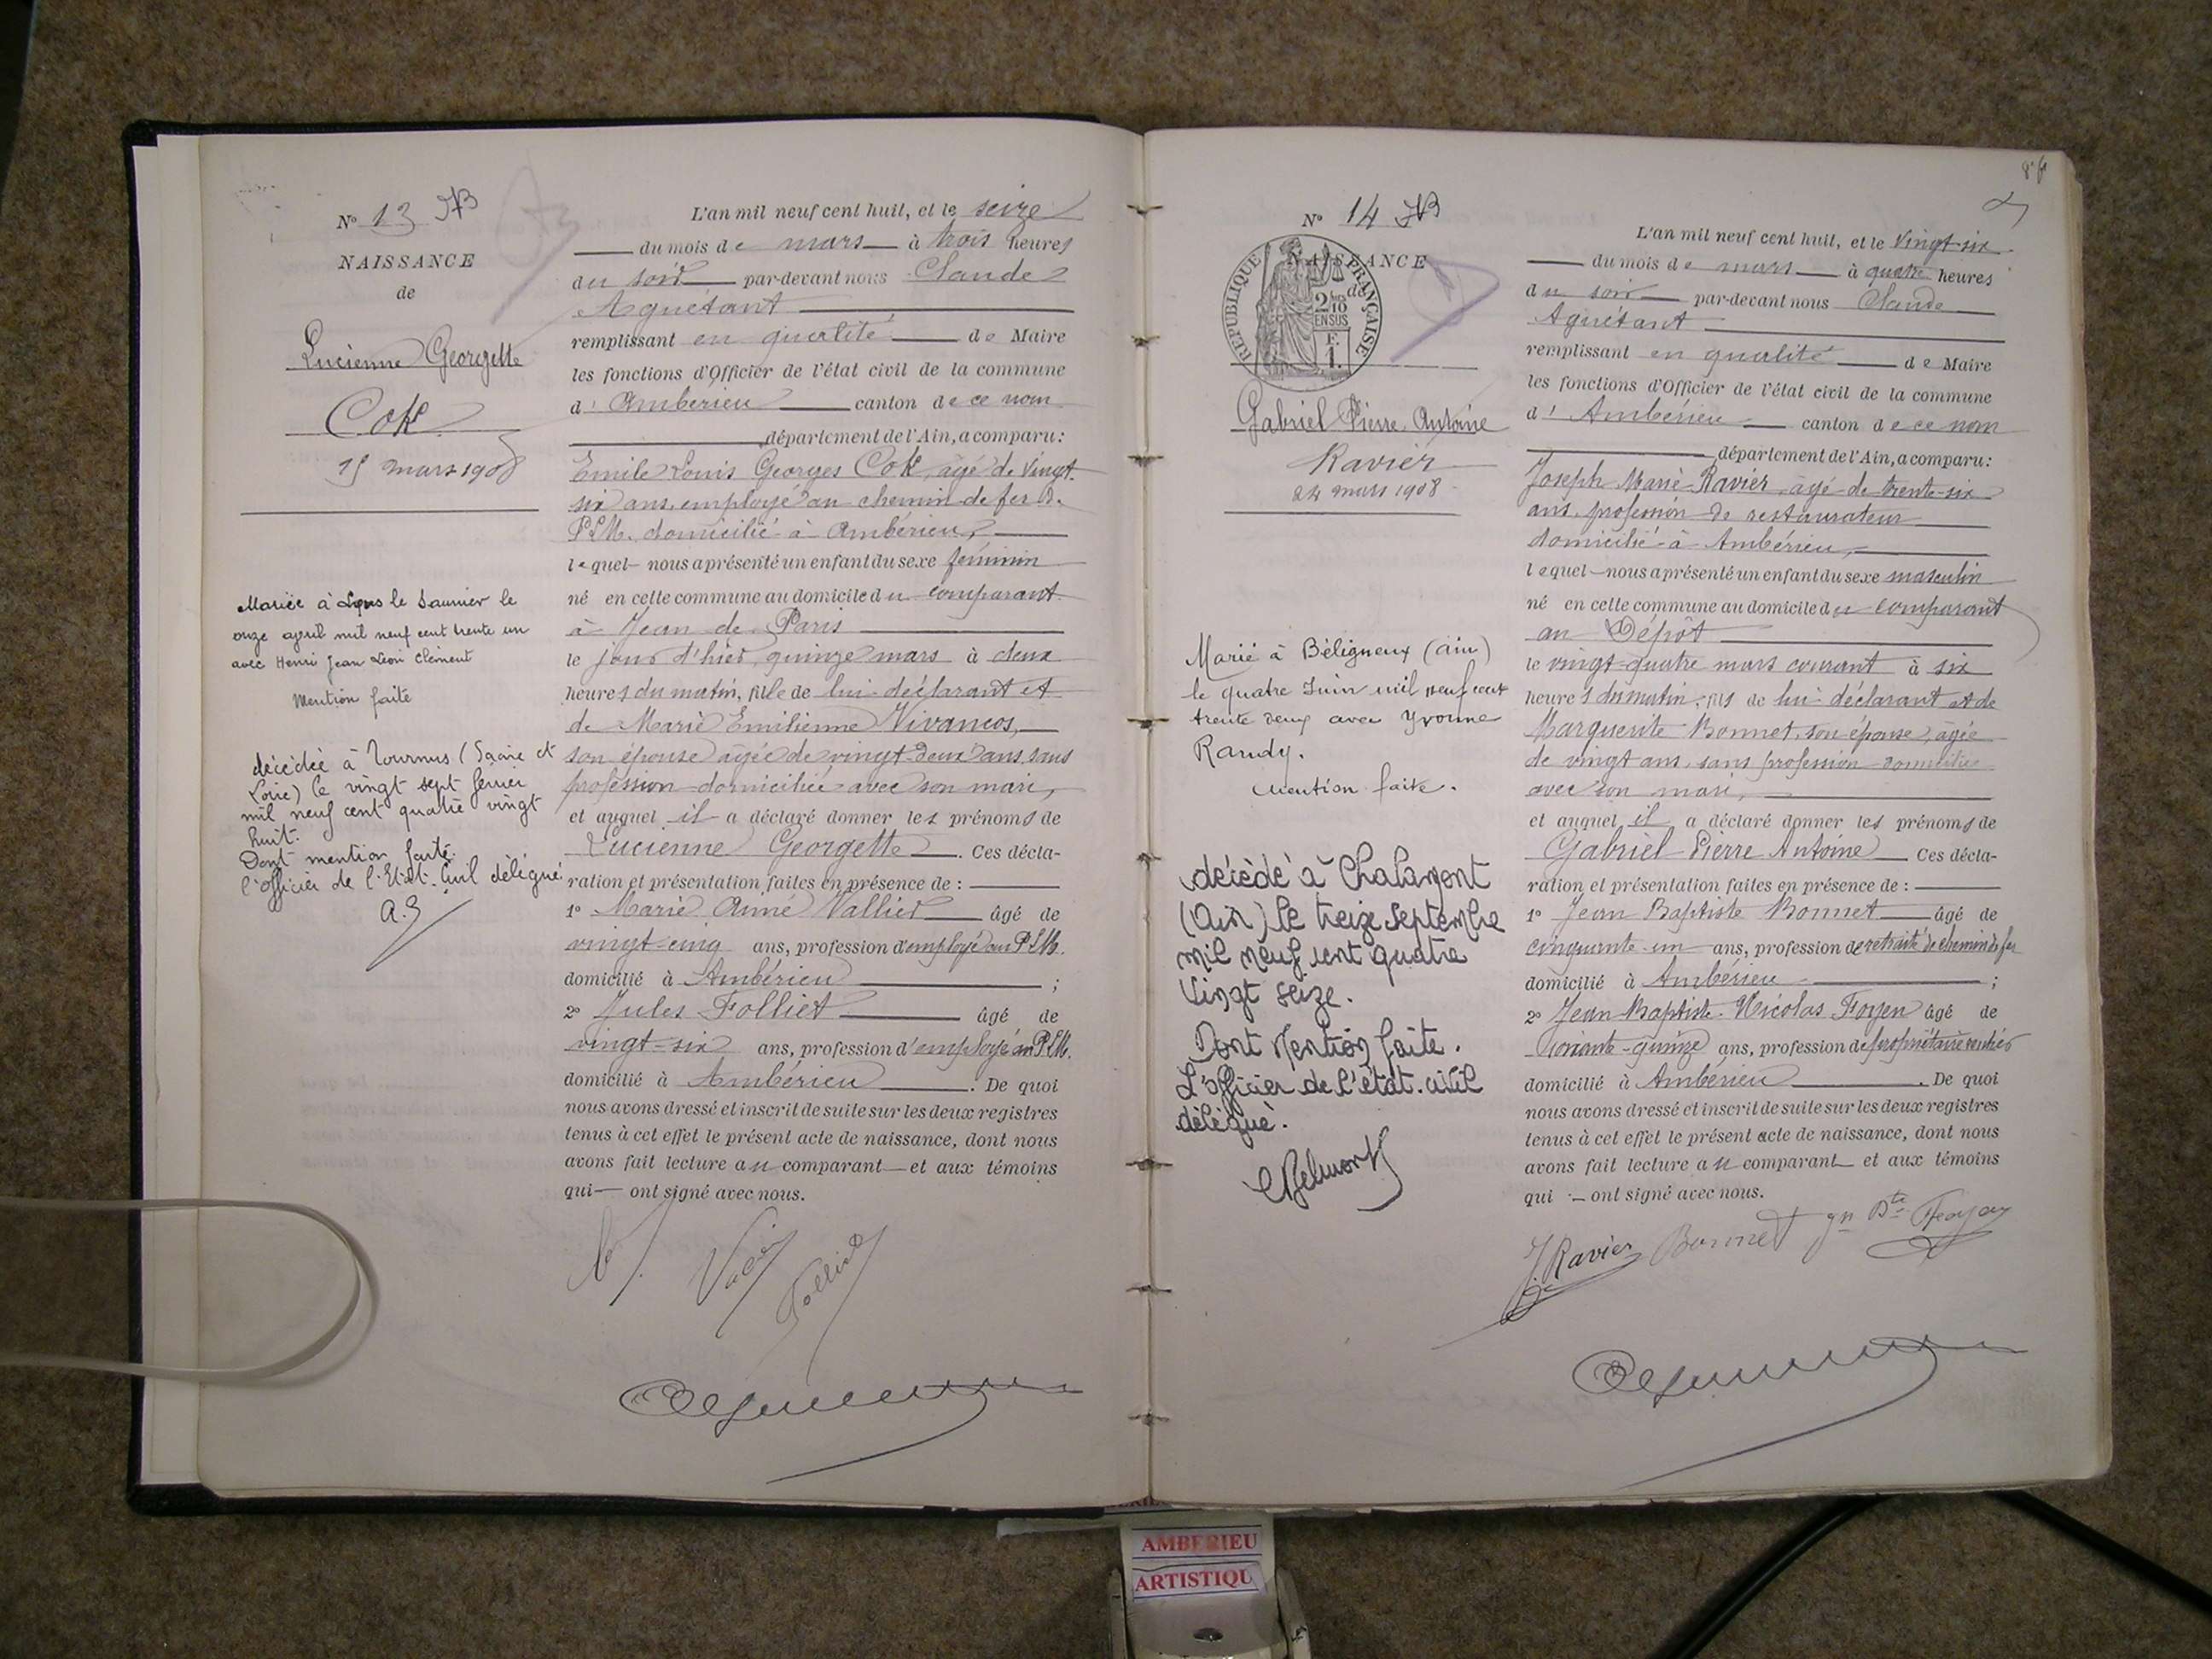 N° 13
NAISSANCE
de
Lucienne Georgette
Cok
15 mars 1908
Mariée à Lons le Saunier le
onze avril mil neuf cent trente un
avec Henri Jean Léon Clément
Mention faite
décédée à Tournus (Saône et
Loire) le vingt sept février
mil neuf cent quatre vingt
huit.
Dont mention faite.
l'officier de l'Etat-Civil délégué
L'an mil neuf cent huit, et le seize
du mois de mars à trois heures
du soir par-devant nous Claude
Aguétant
remplissant en qualité de Maire
les fonctions d'Officier de l'état civil de la commune
d' Ambérieu canton de ce nom
département de l'Ain, a comparu :
Emile Louis Georges Cok, âgé de vingt-
six ans, employé au chemin de fer
P.L.M. domicilié à Ambérieu,
lequel nous a présenté un enfant du sexe féminin
né en cette commune au domicile du comparant
à Jean de Paris
le jour d'hier, quinze mars à deux
heures du matin, fille de lui déclarant et
de Marie Emilienne Vivancos,
son épouse âgée de vingt-deux ans, sans
profession domiciliée avec son mari,
et auquel il a déclaré donner les prénoms de
Lucienne Georgette. Ces décla-
ration et présentation faites en présence de :
1° Marie Anné Vallier âgé de
vingt-cinq ans, profession d'employé au P.L.M.
domicilié à Ambérieu ;
2° Jules Folliet âgé de
vingt-six ans, profession d'employé au P.L.M.
domicilié à Ambérieu. De quoi
nous avons dressé et inscrit de suite sur les deux registres
tenus à cet effet le présent acte de naissance, dont nous
avons fait lecture au comparant et aux témoins
qui ont signé avec nous.
Folliet
N° 14
RÉPUBLIQUE FRANÇAISE
2/10 EN SUS
F. 1.
NAISSANCE
de
Gabriel Pierre Antoine
Ravier
24 mars 1908
Marié à Béligneux (Ain)
le quatre Juin mil neuf cent
trente deux avec Yvonne
Randy.
Mention faite.
décédé à Chalamont
(Ain) le treize septembre
mil neuf cent quatre
vingt seize.
Dont Mention faite.
L'officier de l'état-civil
délégué.
L'an mil neuf cent huit, et le vingt-six
du mois de mars à quatre heures
du soir par-devant nous Claude
Aguétant
remplissant en qualité de Maire
les fonctions d'Officier de l'état civil de la commune
d' Ambérieu canton de ce nom
département de l'Ain, a comparu :
Joseph Marie Ravier, âgé de trente-six
ans, profession de restaurateur
domicilié à Ambérieu,
lequel nous a présenté un enfant du sexe masculin
né en cette commune au domicile du comparant
au Dépôt
le vingt-quatre mars courant à six
heures du matin, fils de lui déclarant et de
Marguerite Bonnet, son épouse, âgée
de vingt ans, sans profession domiciliée
avec son mari,
et auquel il a déclaré donner les prénoms de
Gabriel Pierre Antoine Ces décla-
ration et présentation faites en présence de :
1° Jean Baptiste Bonnet âgé de
cinquante-un ans, profession de retraité de chemin de fer
domicilié à Ambérieu ;
2° Jean Baptiste Nicolas Foyen âgé de
soixante-quinze ans, profession de propriétaire rentier
domicilié à Ambérieu. De quoi
nous avons dressé et inscrit de suite sur les deux registres
tenus à cet effet le présent acte de naissance, dont nous
avons fait lecture au comparant et aux témoins
qui ont signé avec nous.
J. Ravier Bonnet
AMBERIEU
ARTISTIQU